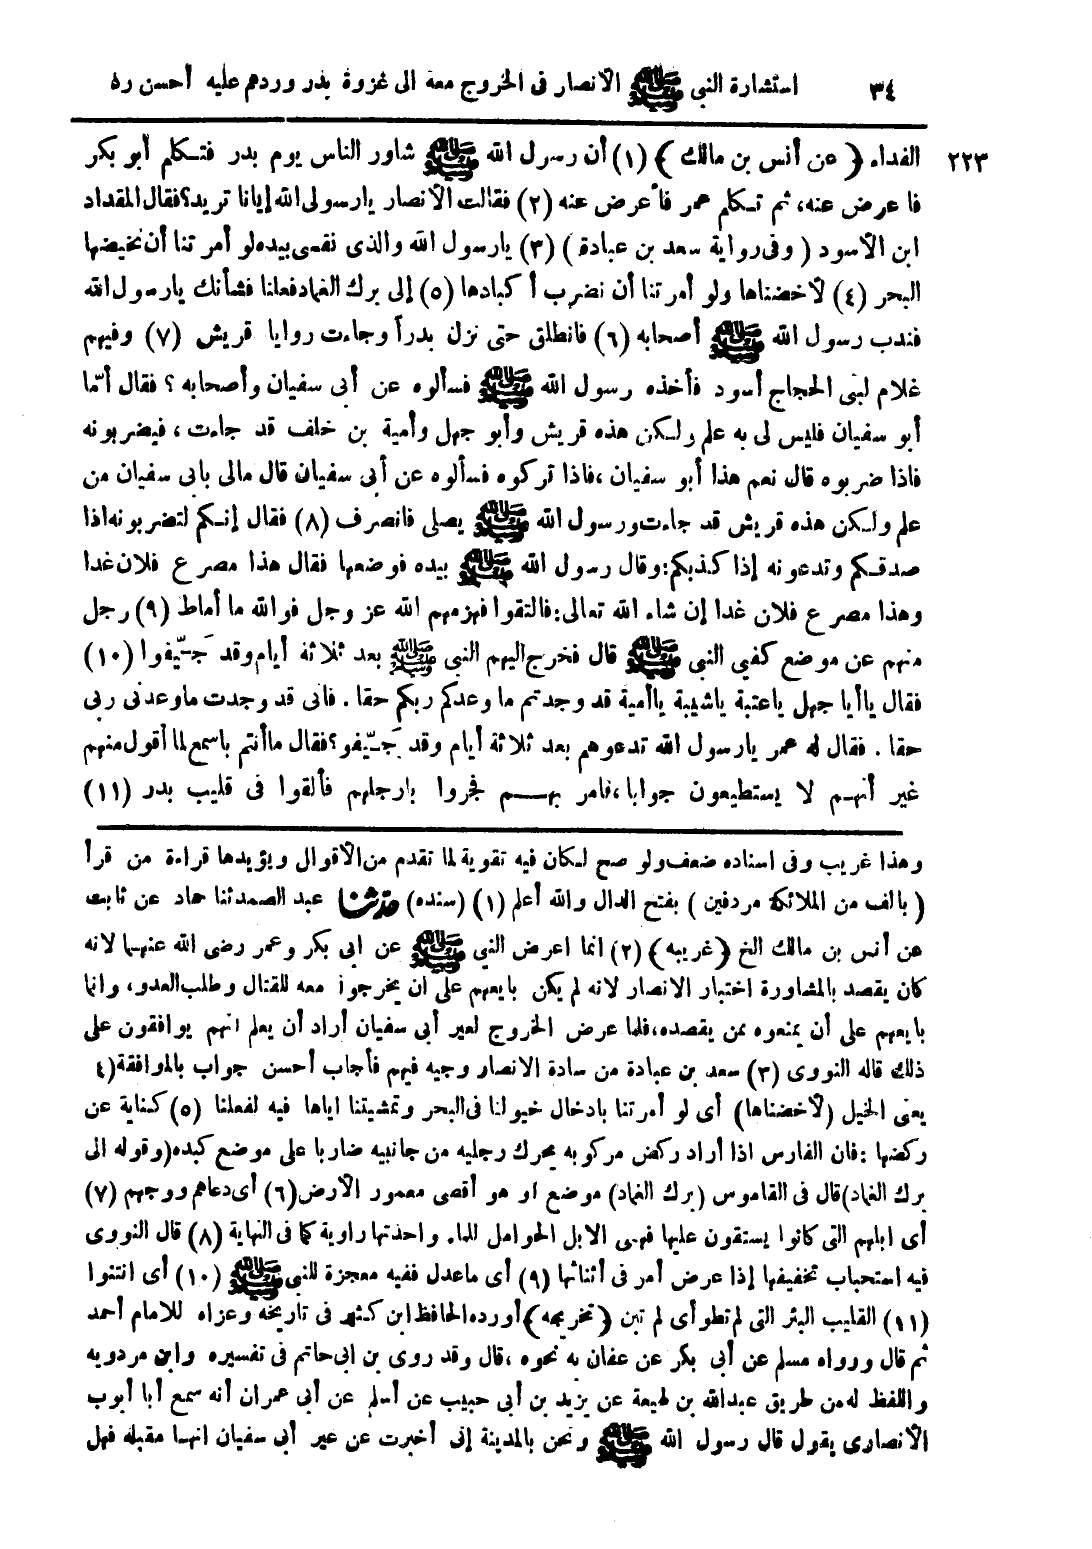 ٣٤ استشارة النبى ﷺ الأنصار فى الخروج معه الى غزوة بدر وردهم عليه أحسن رد
٢٢٣ الفداء ﴿ عن أنس بن مالك ﴾ (١) أن رسول الله ﷺ شاور الناس يوم بدر فتكلم أبو بكر
فأعرض عنه، ثم تكلم عمر فأعرض عنه (٢) فقالت الأنصار يارسول الله إيانا تريد؟ فقال المقداد
ابن الأسود ( وفى رواية سعد بن عبادة ) (٣) يارسول الله والذى نفسى بيده لو أمرتنا أن نخيضها
البحر (٤) لأخضناها ولو أمرتنا أن نضرب أكبادها (٥) إلى برك الغماد فعلنا فشأنك يارسول الله
فندب رسول الله ﷺ أصحابه (٦) فانطلق حتى نزل بدراً وجاءت روايا قريش (٧) وفيهم
غلام لبنى الحجاج أسود فأخذه رسول الله ﷺ فسألوه عن أبى سفيان وأصحابه ؟ فقال أمّا
أبو سفيان فليس لى به علم ولكن هذه قريش وأبو جهل وأمية بن خلف قد جاءت ، فيضربونه
فاذا ضربوه قال نعم هذا أبو سفيان ،فاذا تركوه فسألوه عن أبى سفيان قال مالى بابى سفيان من
علم ولكن هذه قريش قد جاءت ورسول الله ﷺ يصلى فانصرف (٨) فقال إنكم لتضربونه اذا
صدقكم وتدعونه إذا كذبكم:وقال رسول الله ﷺ بيده فوضعها فقال هذا مصرع فلان غدا
وهذا مصرع فلان غدا إن شاء الله تعالى:فالتقوا فهزمهم الله عز وجل فوالله ما أماط (٩) رجل
منهم عن موضع كفي النبى ﷺ قال فخرج اليهم النبى ﷺ بعد ثلاثة أيام وقد جَيّفوا (١٠)
فقال ياأبا جهل ياعتبة ياشيبة ياأمية قد وجدتم ما وعدكم ربكم حقا . فانى قد وجدت ماوعدنى ربى
حقا . فقال له عمر يارسول الله تدعوهم بعد ثلاثة أيام وقد جَيّفو؟ فقال ماأنتم باسمع لما أقول منهم
غير أنهم لا يستطيعون جوابا ،فامر بهم فجروا بارجلهم فألقوا فى قليب بدر (١١)
وهذا غريب وفى اسناده ضعف ولو صح لكان فيه تقوية لما تقدم من الأقوال ويؤيدها قراءة من قرأ
( بالف من الملائكة مردفين ) بفتح الدال والله أعلم (١) (سنده) حدثنا عبد الصمد ثنا حماد عن ثابت
عن أنس بن مالك الخ ﴿غريبه﴾ (٢) انما اعرض النبي ﷺ عن ابى بكر وعمر رضى الله عنهما لانه
كان يقصد بالمشاورة اختبار الانصار لانه لم يكن بايعهم على ان يخرجوا معه للقتال وطلب العدو، وانما
بايعهم على أن يمنعوه ممن يقصده،فلما عرض الخروج لعير أبى سفيان أراد أن يعلم انهم يوافقون على
ذلك قاله النووى (٣) سعد بن عبادة من سادة الانصار وجيه فيهم فأجاب أحسن جواب بالموافقة(٤
يعنى الخيل (لأخضناها) أى لو أمرتنا بادخال خيولنا فى البحر وتمشيتنا اياها فيه لفعلنا (٥) كناية عن
ركضها :فان الفارس اذا أراد ركض مركوبه يحرك رجليه من جانبيه ضاربا على موضع كبده(وقوله الى
برك الغماد)قال فى القاموس (برك الغماد) موضع او هو أقصى معمور الأرض(٦) أى دعاهم ووجههم (٧)
أى ابلهم التى كانوا يستقون عليها فهى الابل الحوامل للماء واحدتها راوية كما فى النهاية (٨) قال النووى
فيه استحباب تخفيفها إذا عرض أمر فى أثنائها (٩) أى ماعدل ففيه معجزة للنبى ﷺ (١٠) أى انتنوا
(١١) القليب البئر التى لم تطو أى لم تبن ﴿ تخريجه ﴾ أورده الحافظ ابن كثير فى تاريخه وعزاه للامام أحمد
ثم قال ورواه مسلم عن أبى بكر عن عفان به نحوه ،قال وقد روى بن ابى حاتم فى تفسيره وابن مردويه
واللفظ له من طريق عبدالله بن لهيعة عن يزيد بن أبى حبيب عن أسلم عن أبى عمران أنه سمع أبا أيوب
الأنصارى يقول قال رسول الله ﷺ ونحن بالمدينة إنى أخبرت عن عير أبى سفيان انها مقبلة فهل